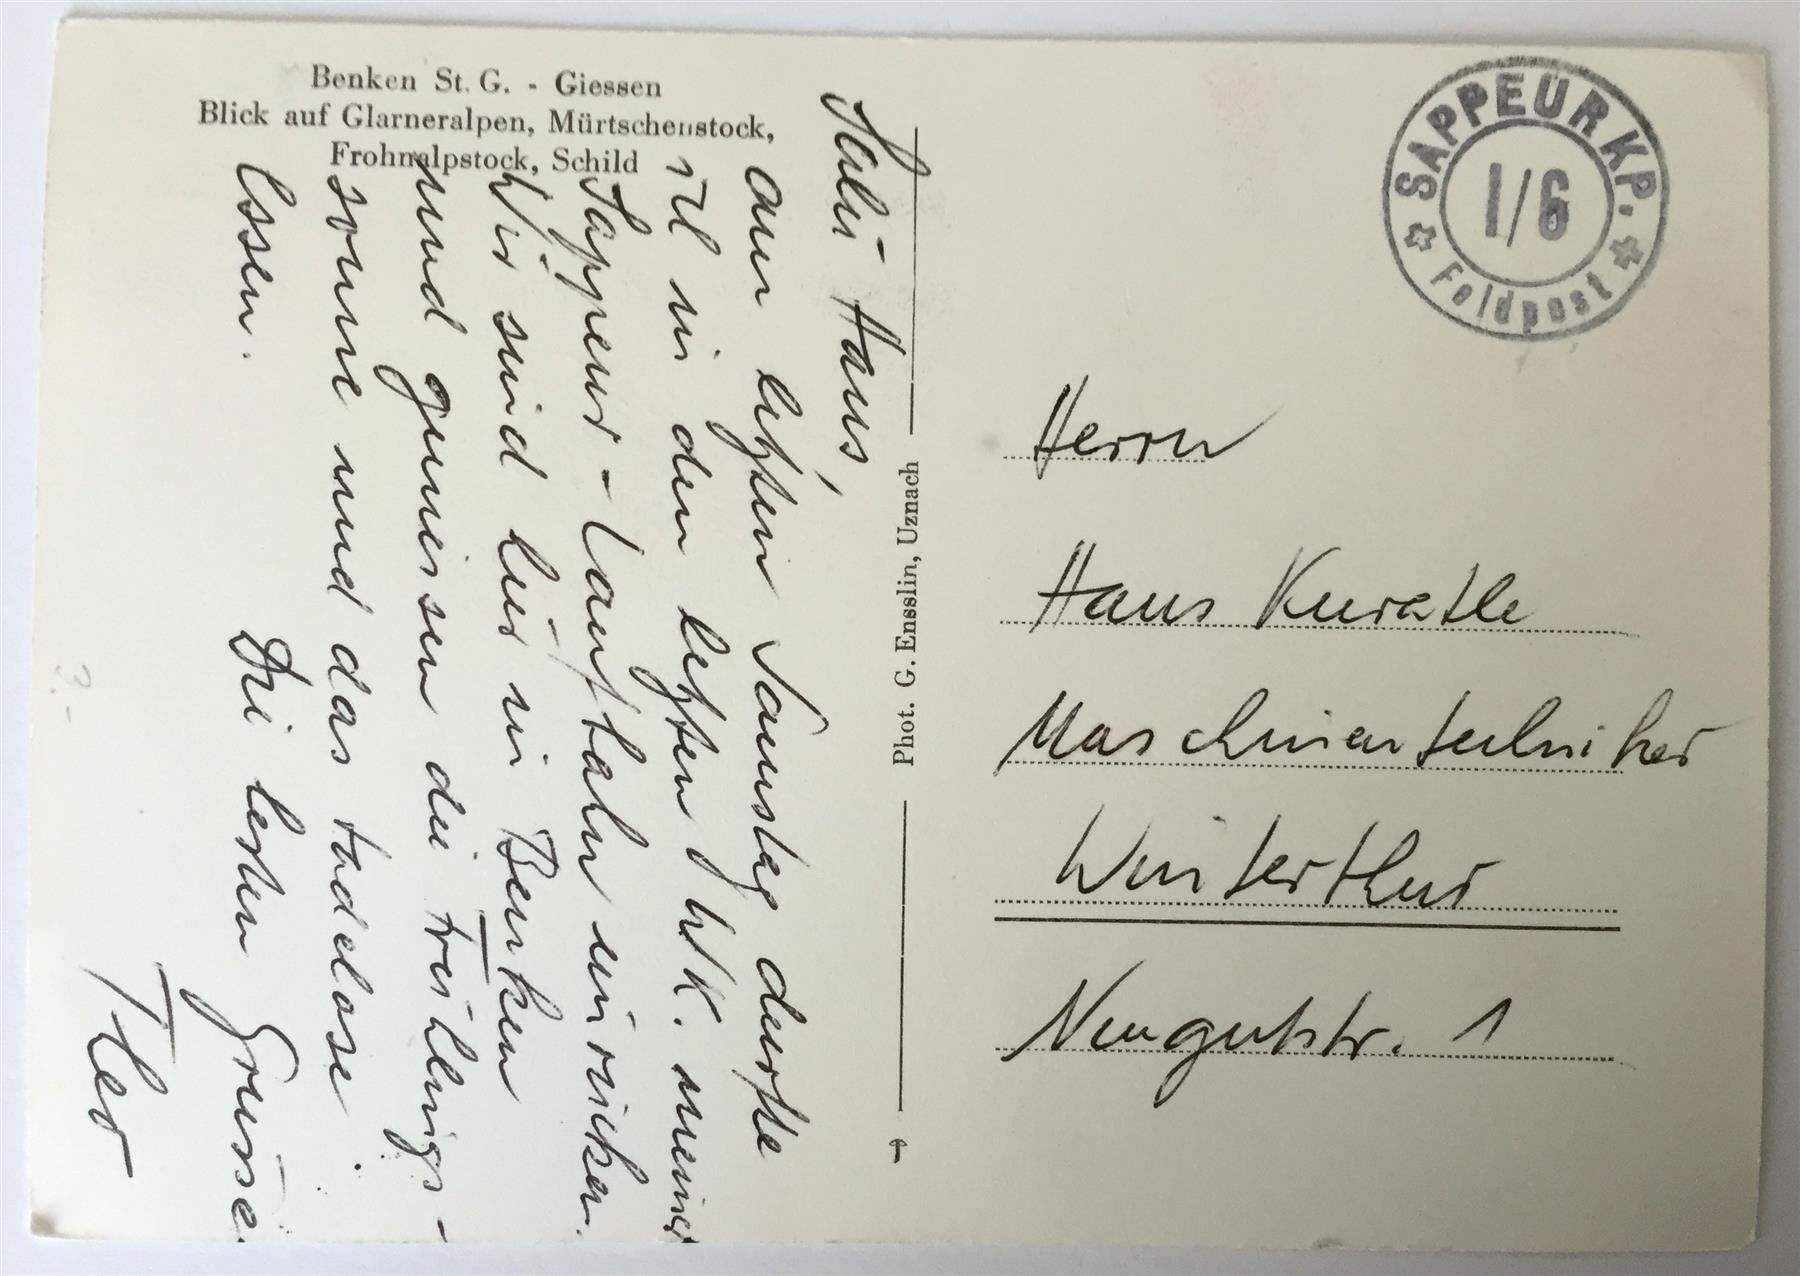 Benken St. G. - Giessen
Blick auf Glarneralpen, Mürtschenstock,
Frohnalpstock, Schild
Salü Hans,
am letzten Samstag durfte
ich in den letzten WK. meiner
Sappeur-Laufbahn einrücken.
Wir sind hier in Benken
und geniessen die Frühlings-
sonne und das tadellose
Essen.
Die besten Grüsse
Theo
Phot. G. Ensslin, Uznach
SAPPEUR KP.
I/6
Feldpost
Herrn
Hans Kuratle
Maschinentechniker
Winterthur
Neugutstr. 1
3.-